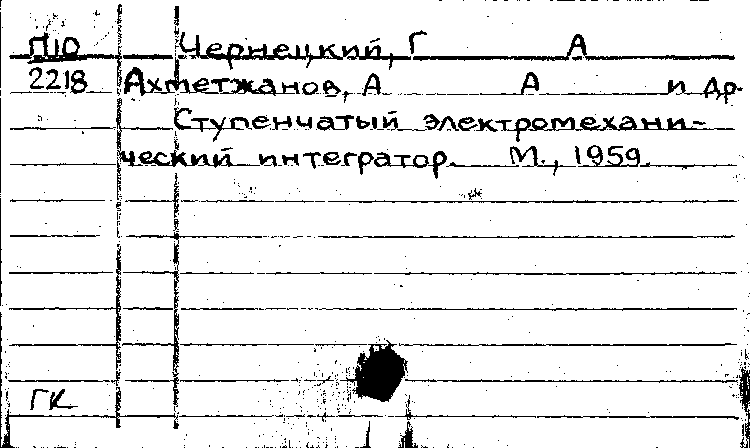 П10 Чернецкий, Г А
2218 Ахметжанов, А А и др.
Ступенчатый электромехани-
ческий интегратор. М., 1959.
ГК